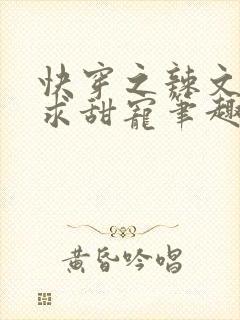 快穿之辣文
求甜宠笔趣
黄昏吟唱